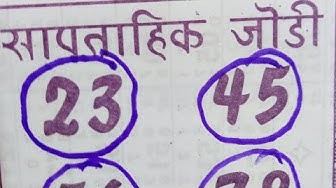 साप्ताहिक जोडी
23 45